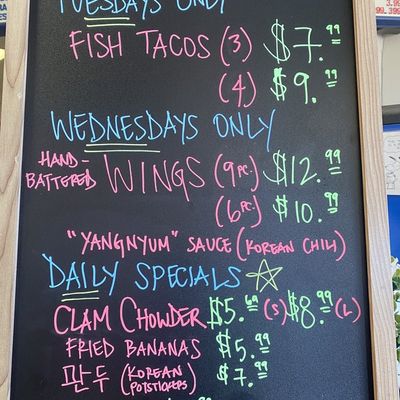 TUESDAYS ONLY
FISH TACOS (3) $7.99
(4) $9.99
WEDNESDAYS ONLY
HAND-BATTERED WINGS (9 PC.) $12.99
(6 PC.) $10.99
"YANGNYUM" SAUCE (KOREAN CHILI)
DAILY SPECIALS
CLAM CHOWDER $5.69 (S) $8.99 (L)
FRIED BANANAS $5.99
만두 (KOREAN POTSTICKERS) $7.99